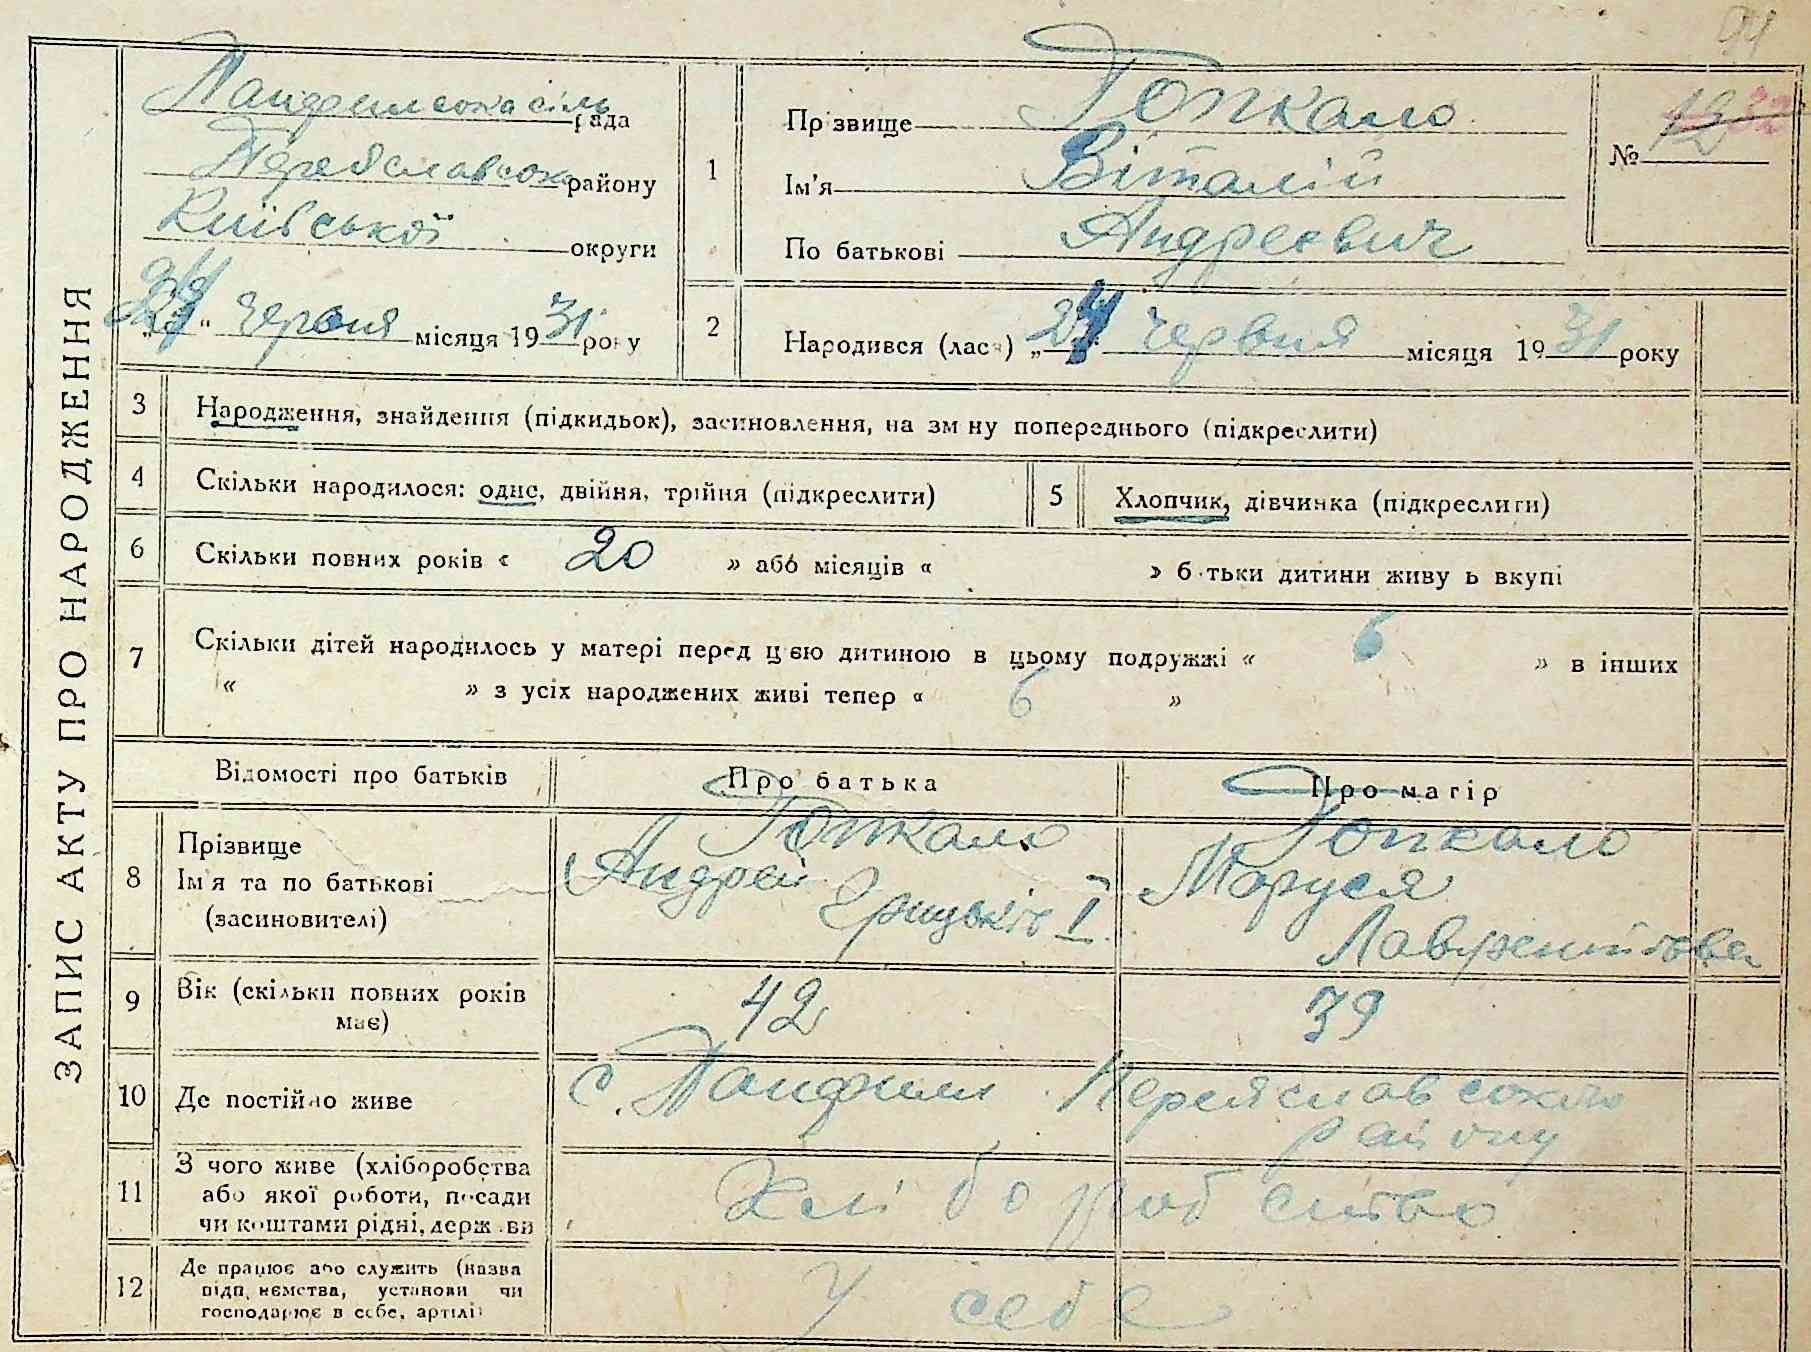 94
ЗАПИС АКТУ ПРО НАРОДЖЕННЯ
Панфилська сіль рада
Переяславська району
Київської округи
"24" червня місяця 1931 року
1
Прізвище Гопкало
Ім'я Віталій
По батькові Андреєвич
№ 32
2
Народився (лася) "24" червня місяця 1931 року
3
Народження, знайдення (підкидьок), засиновлення, на зміну попереднього (підкреслити)
4
Скільки народилося: одне, двійня, трійня (підкреслити)
5
Хлопчик, дівчинка (підкреслити)
6
Скільки повних років « 20 » або місяців « » батьки дитини живуть вкупі
7
Скільки дітей народилось у матері перед цією дитиною в цьому подружжі « 6 » в інших
« » з усіх народжених живі тепер « 6 »
Відомості про батьків
Про батька
Про матір
8
Прізвище
Ім'я та по батькові
(засиновителі)
Гопкало
Андрей
Грицьків І
Гопкало
Маруся
9
Вік (скільки повних років
має)
42
39
10
Де постійно живе
с. Панфили Переяславського
району
11
З чого живе (хліборобства
або якої роботи, посади
чи коштами рідні, держави
Хліборобство
12
Де працює або служить (назва
підприємства, установи чи
господарює в себе, артілі)
У себе